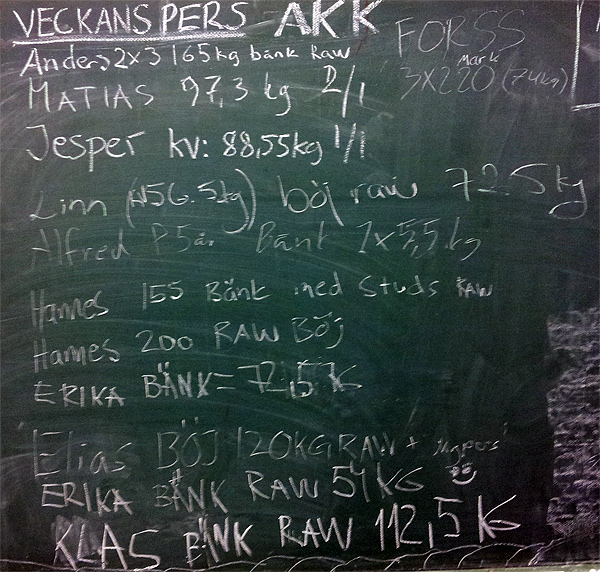 VECKANS PERS AKK
Anders 2x3 165kg bänk Raw
FORSS
Mark
3X220 (74kg)
MATIAS 97,3 kg 2/1
Jesper kv: 88,55kg 1/1
Linn 56.5kg) böj raw 72.5kg
Alfred Bänk 1x5,5 kg
Hannes 155 Bänk med studs RAW
Hannes 200 RAW BÖJ
ERIKA BÄNK = 72,5 KG
Elias BÖJ 120KG RAW +
ERIKA BÄNK RAW 54 KG
KLAS BÄNK RAW 112,5 KG